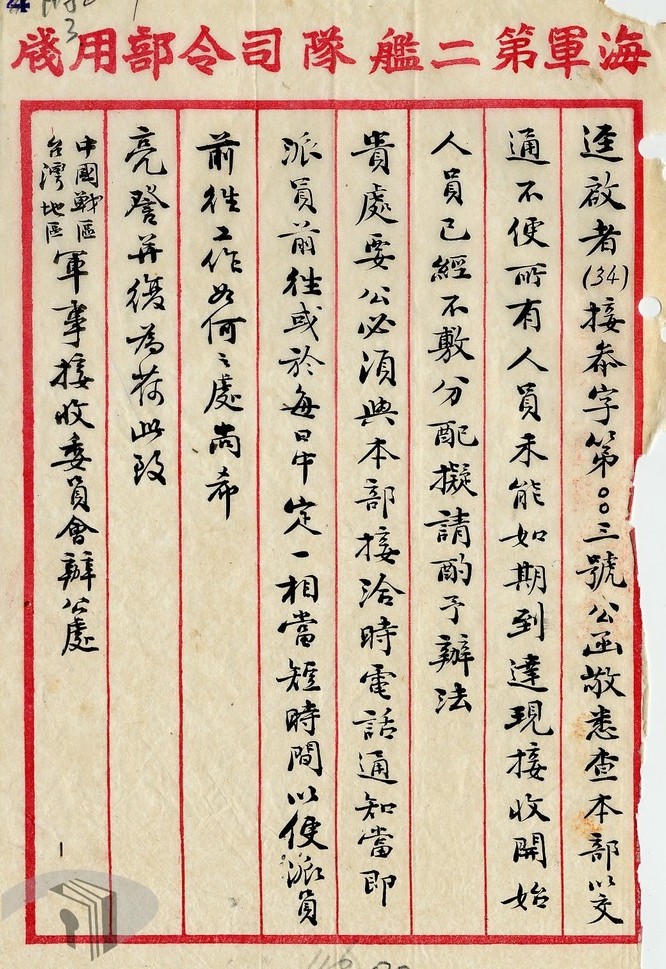 海軍第二艦隊司令部用牋
逕啟者(34)接叅字第〇〇三號公函敬悉查本部以交
通不便所有人員未能如期到達現接收開始
人員已經不敷分配擬請酌予辦法
貴處要公必須與本部接洽時電話通知當即
派員前往或於每日中定一相當短時間以便派員
前往工作如何之處尚希
亮詧并復為荷此致
中國戰區
台灣地區
軍事接收委員會辦公處